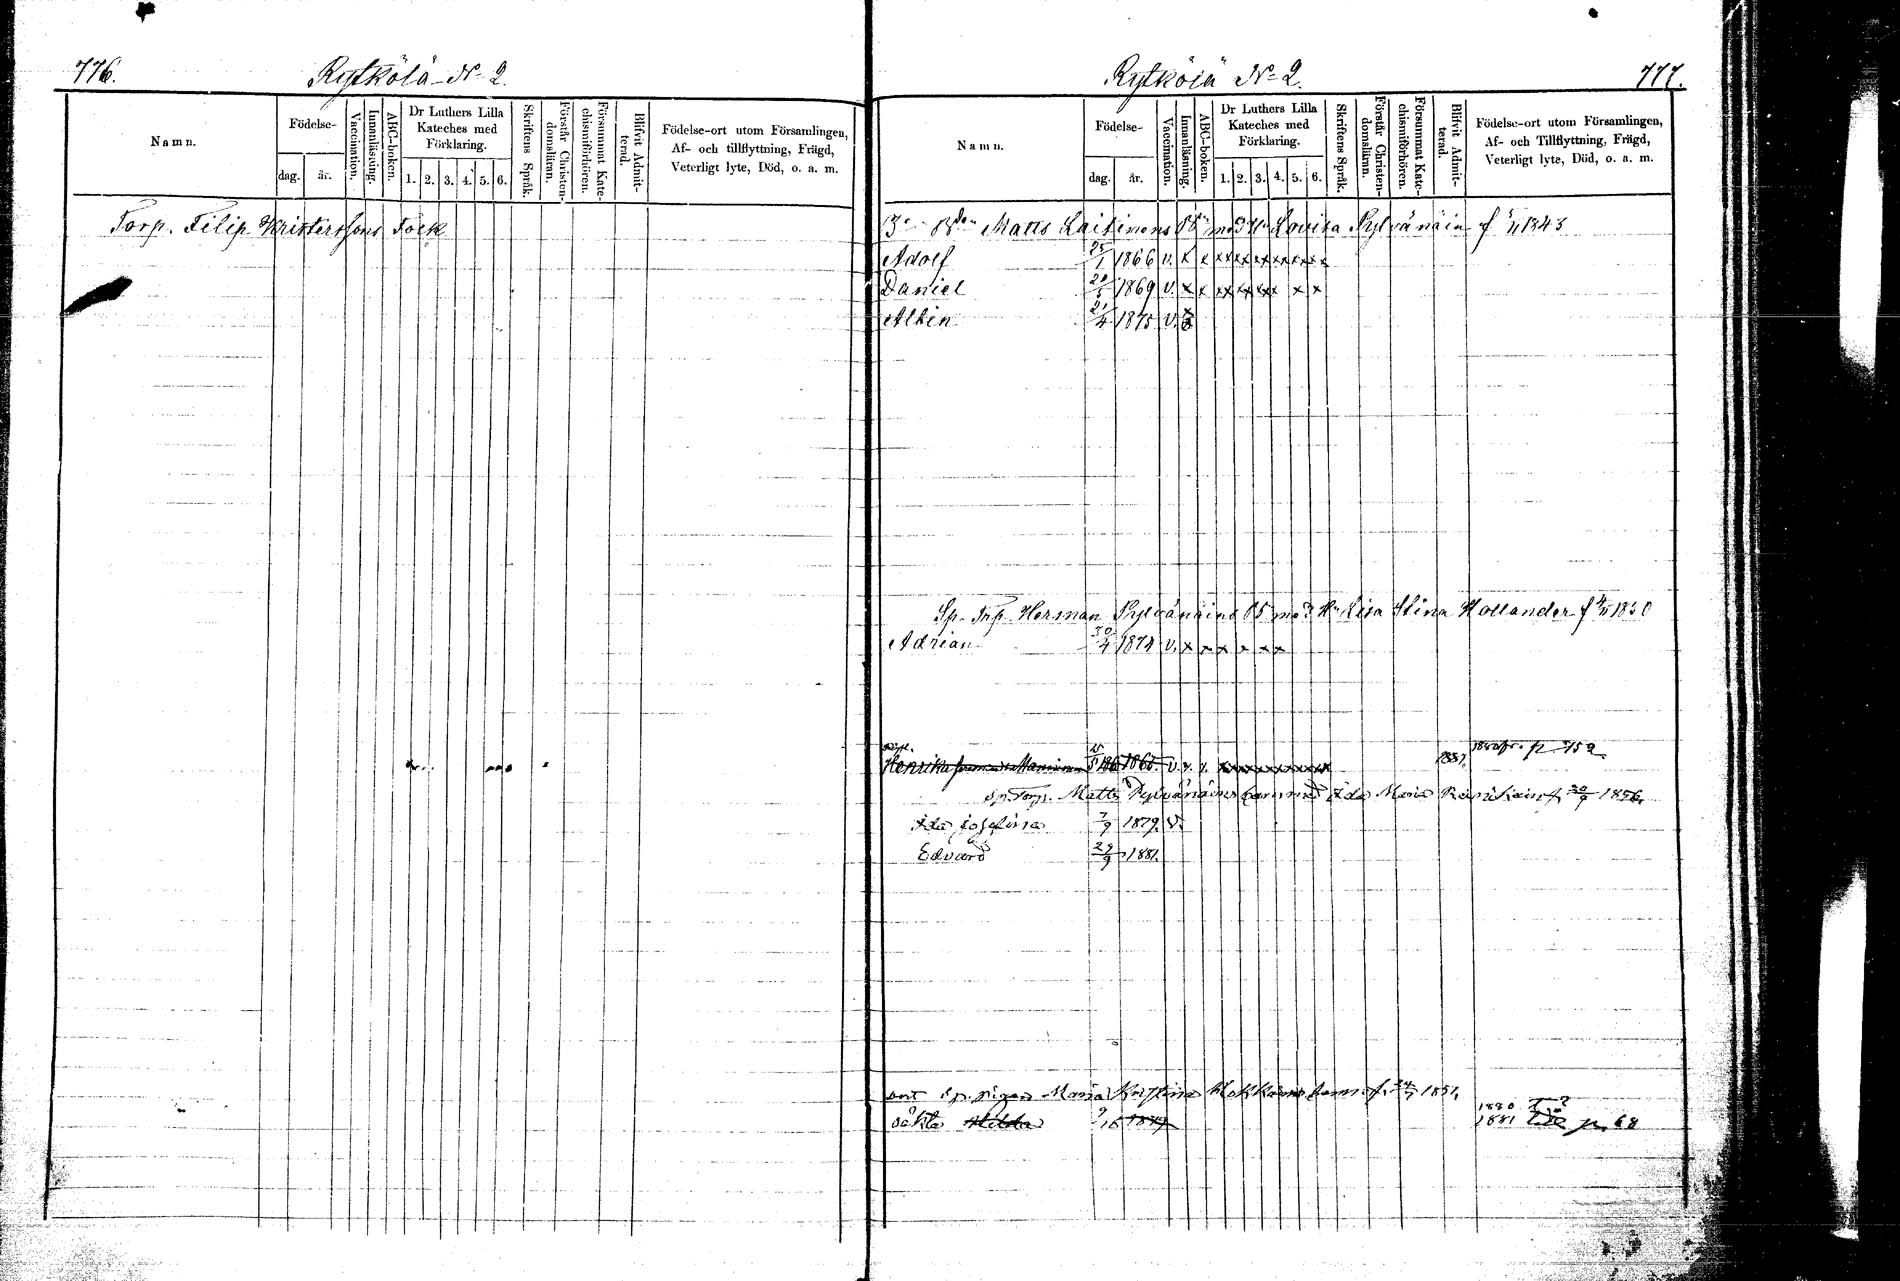 776.
Rytkölä No 2.
Namn.
Födelse-
dag.
år.
Vaccination.
Innanläsning.
ABC-boken.
Dr Luthers Lilla
Kateches med
Förklaring.
1. 2. 3. 4. 5. 6.
Skriftens Språk.
Förstår Christen-
domsläran.
Försummat Kate-
chismiförhören.
Blifvit Admit-
terad.
Födelse-ort utom Församlingen,
Af- och tillflyttning, Frägd,
Veterligt lyte, Död, o. a. m.
Torp. Filip Kristerssons Folk
Rytkölä No 2.
777.
Namn.
Födelse-
dag.
år.
Vaccination.
Innanläsning.
ABC-boken.
Dr Luthers Lilla
Kateches med
Förklaring.
1. 2. 3. 4. 5. 6.
Skriftens Språk.
Förstår Christen-
domsläran.
Försummat Kate-
chismiförhören.
Blifvit Admit-
terad.
Födelse-ort utom Församlingen,
Af- och Tillflyttning, Frägd,
Veterligt lyte, Död, o. a. m.
Matts Laitinens med Hu Lovisa Pylvänäin f 1843
Adolf 25/1 1866 v. x x xx xx xx xx xx xx
Daniel 20/5 1869 v. x x xx xx xx x x
Albin 21/4 1875 v.
Sp. Torp. Herman Pylvänäins med Hu Lisa Stina Hollander f 1850
Adrian 30/4 1874 v. x x x x x x
Henrika 1881.
Sp. Torp. Matts Pylvänäins barn med Ida Maria f. 30/9 1856.
Ida Josefina 7/9 1879. v.
Edvard 29/9 1881.
Sp. pigan Maria Kristina barn f. 1851.
1880
Hilda 1881 p. 68